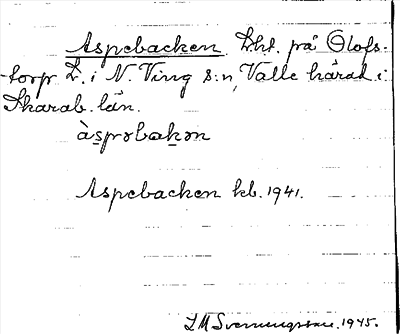 Aspebacken Lht. på Olofs-
torp L. i N. Ving s:n, Valle härad i
Skarab. län.
àspəbakən
Aspebacken kb. 1941.
1945.